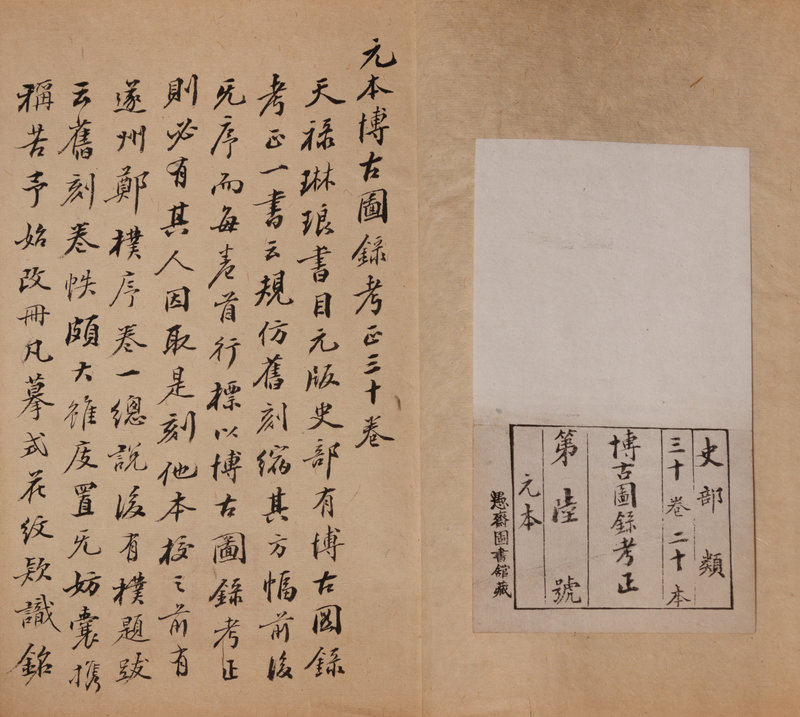 史部類
三十卷二十本
博古圖錄考正
第陸號
元本
愚齋圖書館藏
元本博古圖錄考正三十卷
天祿琳琅書目元版史部有博古圖錄
考正一書云規仿舊刻縮其方幅前後
无序而每卷首行標以博古圖錄考正
則必有其人因取是刻他本校之前有
遂州鄭樸序卷一總說後有樸題跋
云舊刻卷帙頗大雖庋置无妨囊攜
稱苦予始改冊凡摹式花紋欵識銘